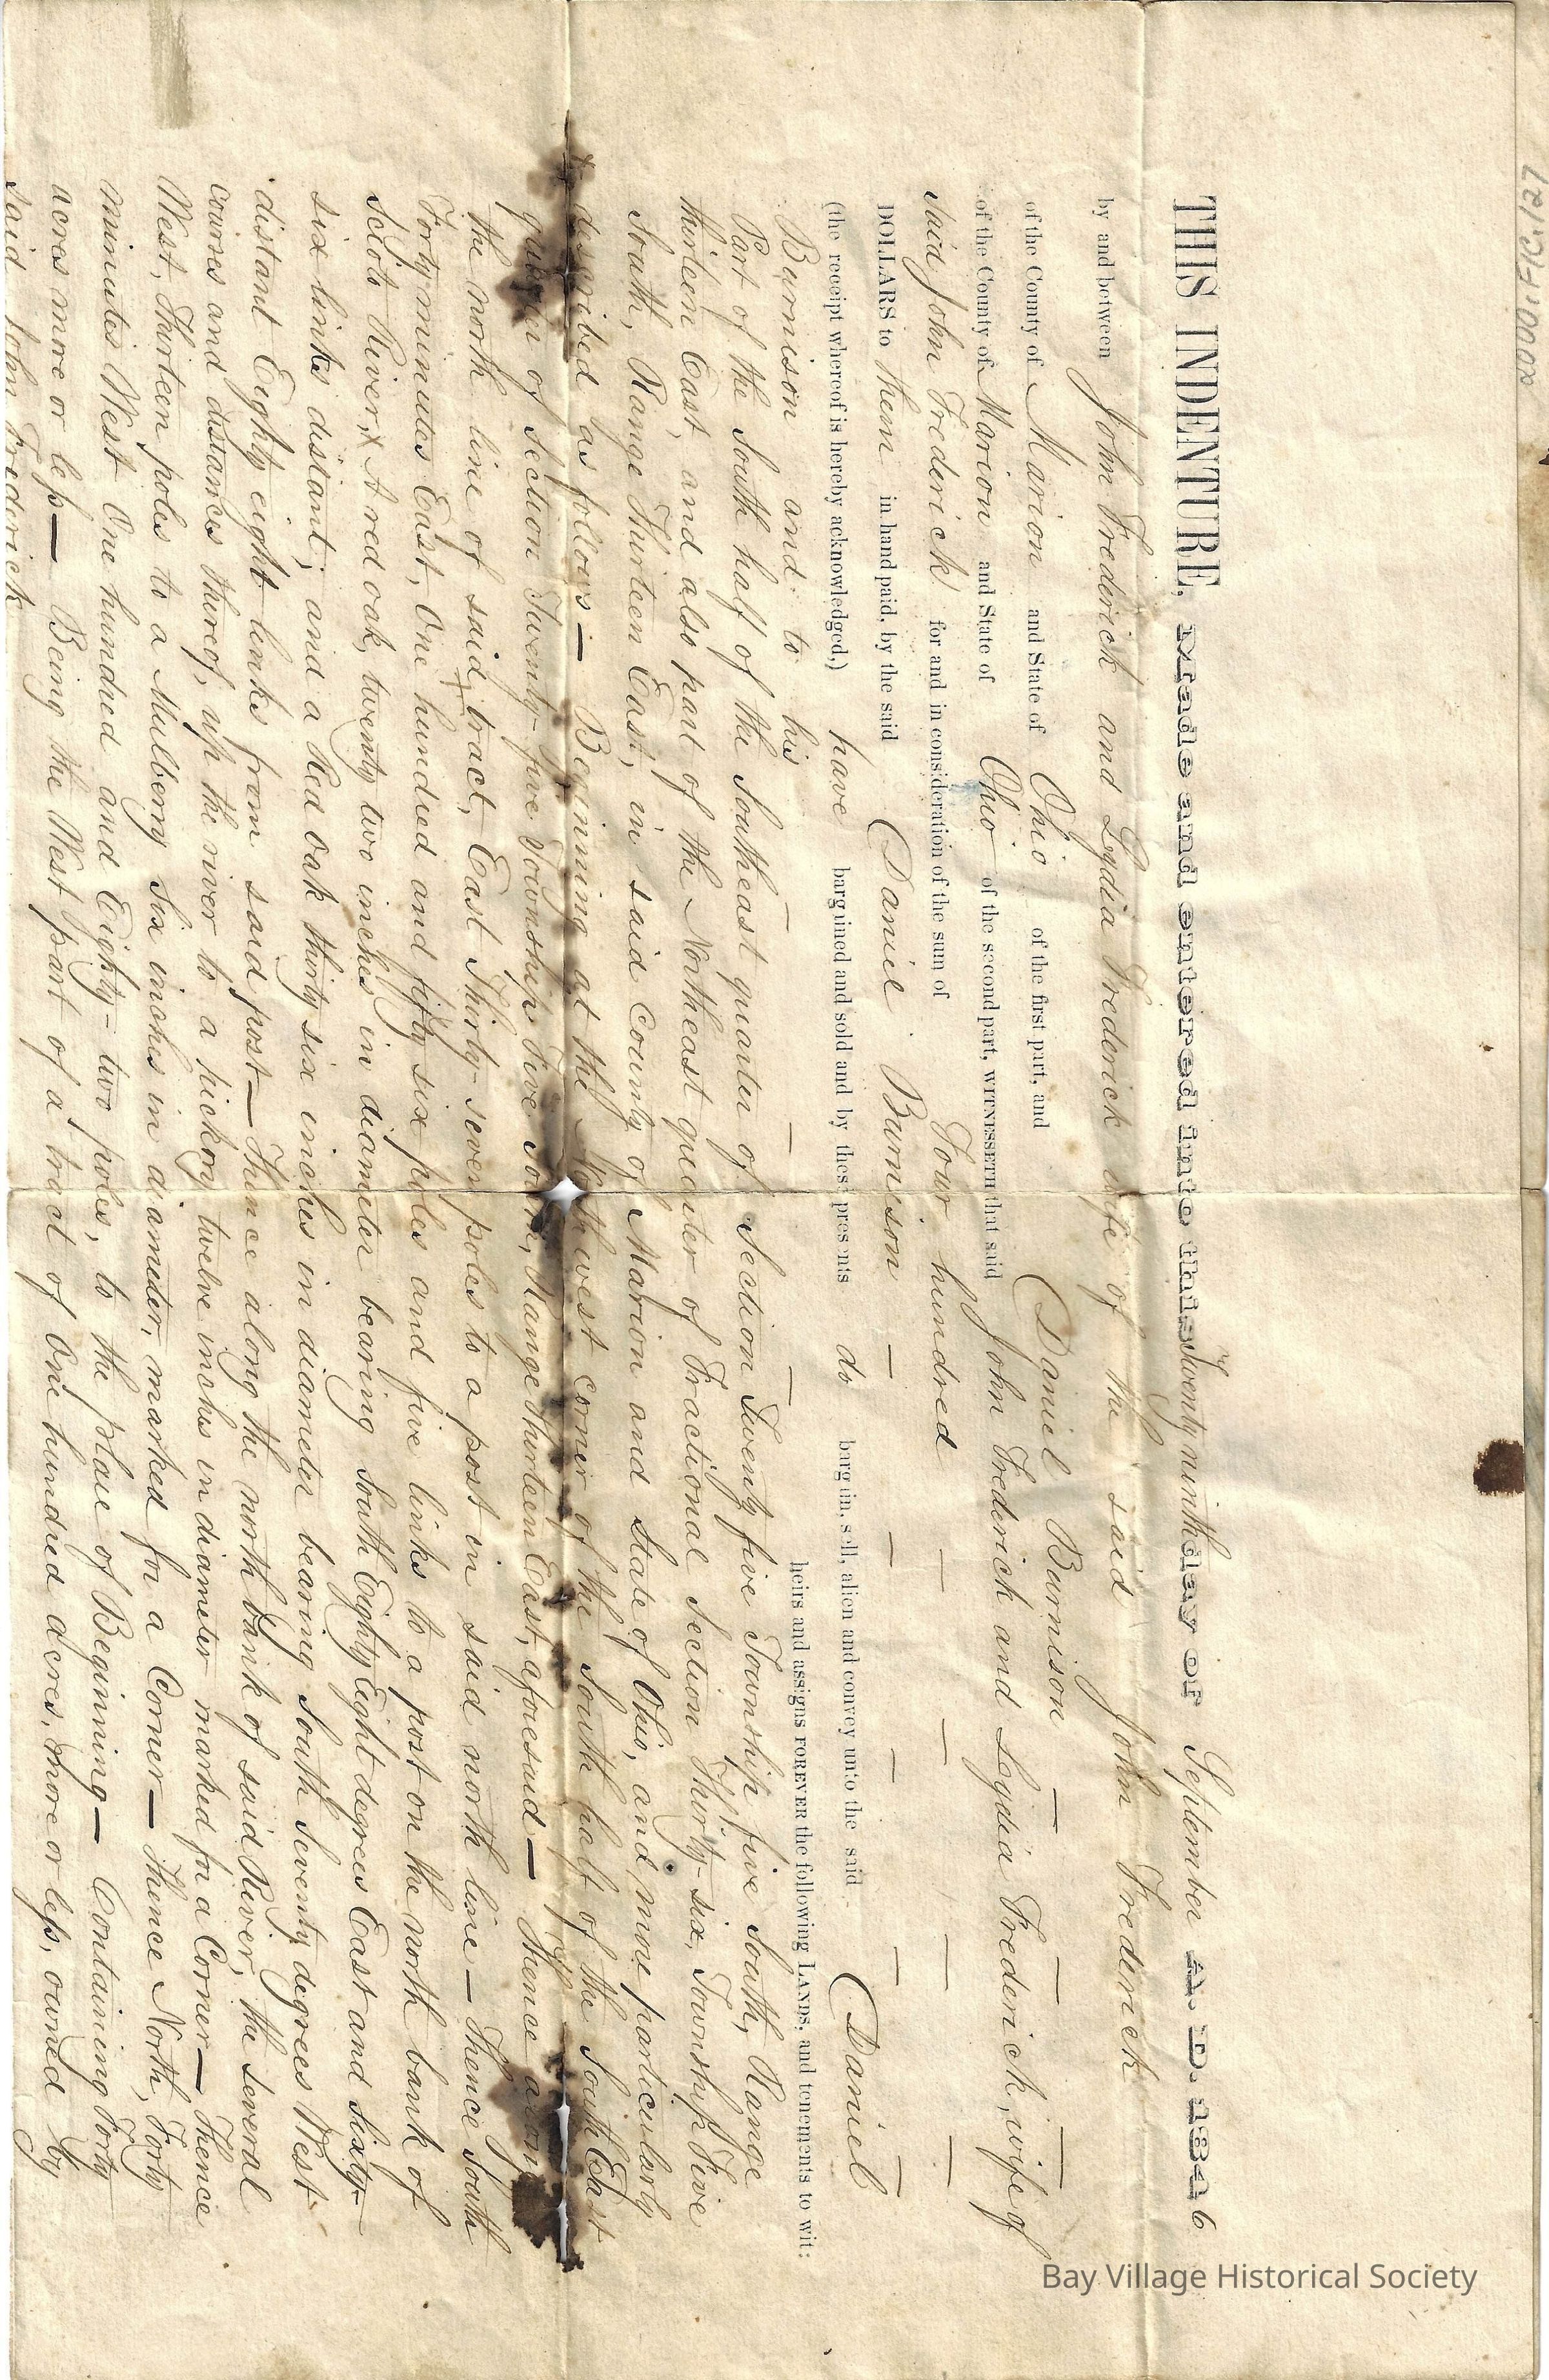 2000.FIC.127
THIS INDENTURE, Made and entered into this Twenty ninth day of September A. D. 1846
by and between John Frederick and Lydia Frederick wife of the said John Frederick
of the County of Marion and State of Ohio of the first part, and Daniel Burnison
of the County of Marion and State of Ohio of the second part, WITNESSETH that said John Frederick and Lydia Frederick, wife of
said John Frederick for and in consideration of the sum of Four hundred
DOLLARS to them in hand paid, by the said Daniel Burnison
(the receipt whereof is hereby acknowledged,) have bargained and sold and by these presents do bargain, sell, alien and convey unto the said Daniel
Burnison and to his heirs and assigns FOREVER the following LANDS, and tenements to wit:
Part of the South half of the Southeast quarter of Section Twenty five Township five South, Range
thirteen East, and also part of the Northeast quarter of Fractional Section Thirty-six, Township Five
South, Range Thirteen East, in said County of Marion and State of Ohio, and more particularly
described as follows— Beginning at the North west corner of the South half of the South East
quarter of Section Twenty-five Township Five South, Range Thirteen East, aforesaid— Thence along
the north line of said tract, East Thirty-seven poles to a post in said north line— Thence South
Forty minutes East, One hundred and fifty six poles and five links to a post on the north bank of
Scioto River, x A red oak, twenty two inches in diameter bearing South Eighty Eight degrees East and sixty-
six links distant; and a Red Oak thirty six inches in diameter bearing South Seventy degrees West
distant Eighty eight links from said post— Thence along the north bank of said River, the several
courses and distances thereof, up the river to a hickory twelve inches in diameter marked for a Corner— Thence
West, Thirteen poles to a Mulberry Six inches in diameter, marked for a Corner— Thence North, Forty
minutes West One hundred and Eighty-two poles, to the place of Beginning— Containing Forty
acres more or less— Being the West part of a tract of One hundred acres, more or less, owned by
said John Frederick
Bay Village Historical Society